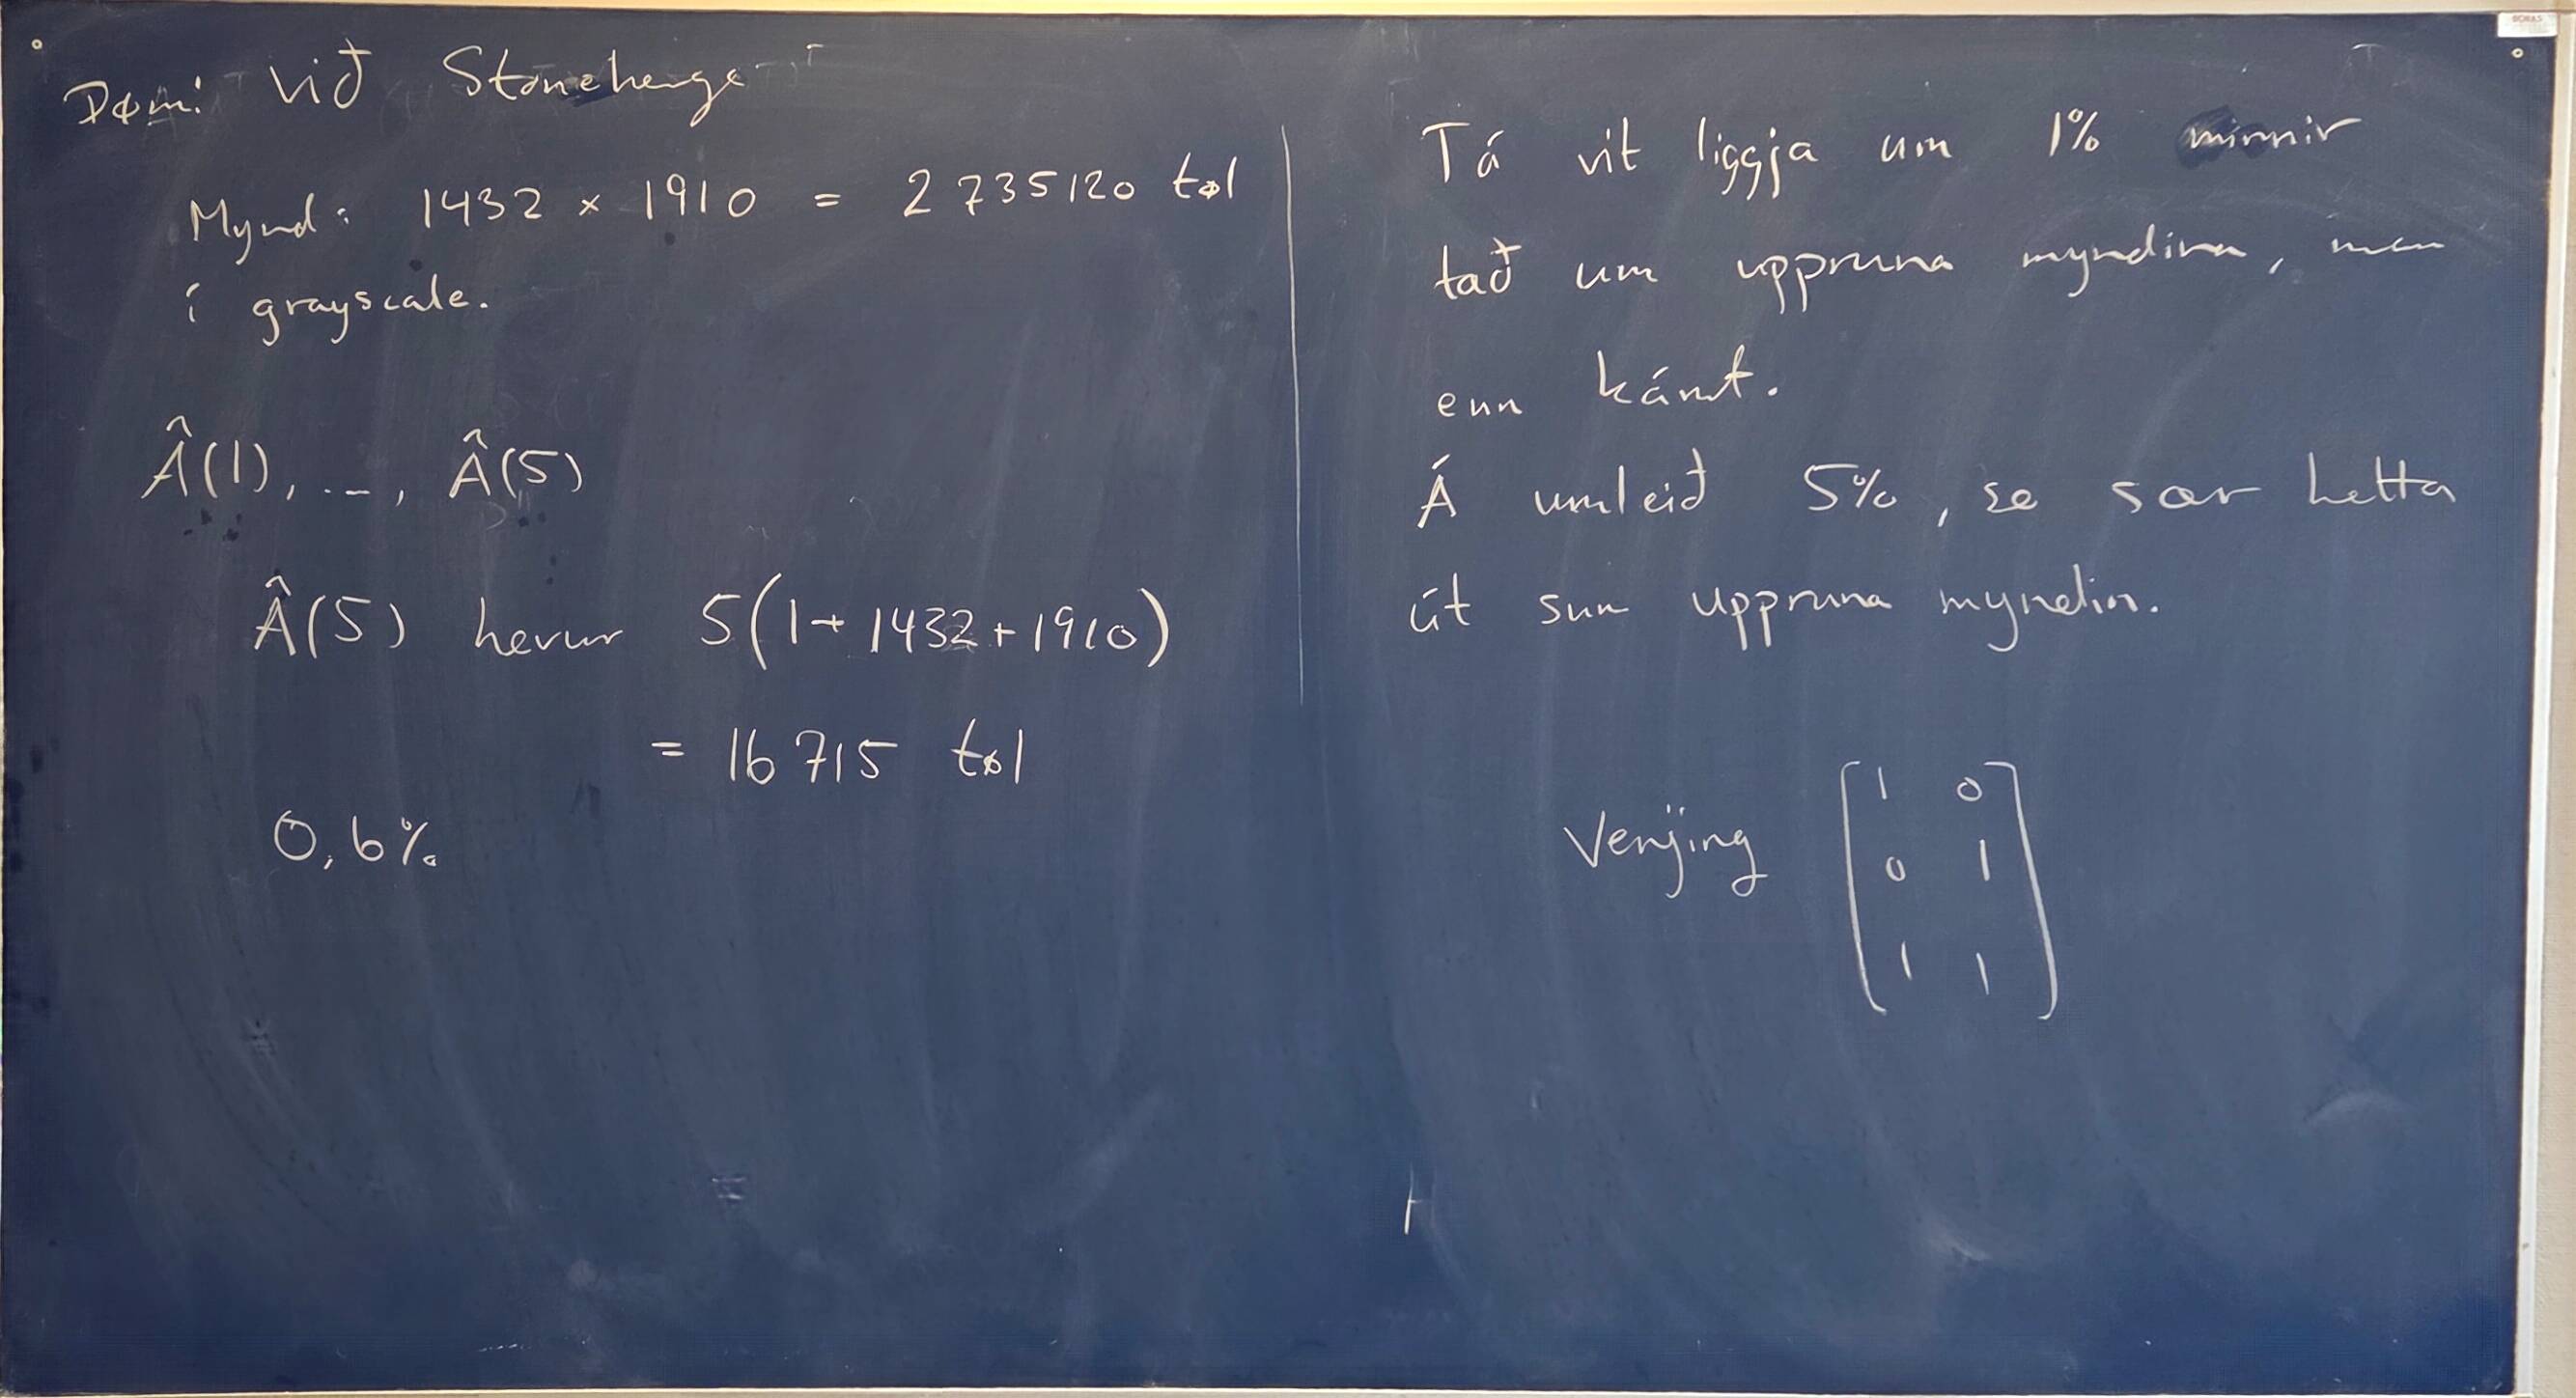 Dømi við Stonehenge
Mynd: 1432 × 1910 = 2 735 120 tøl
í grayscale.
Â(1), ..., Â(5)
Â(5) hevur 5(1 + 1432 + 1910)
= 16 715 tøl
0,6%
Tá vit liggja um 1% minnir
tað um uppruna myndina, men
enn kámt.
Á umleið 5%, so sær hetta
út sum uppruna myndin.
Venjing [1 0
0 1
1 1]